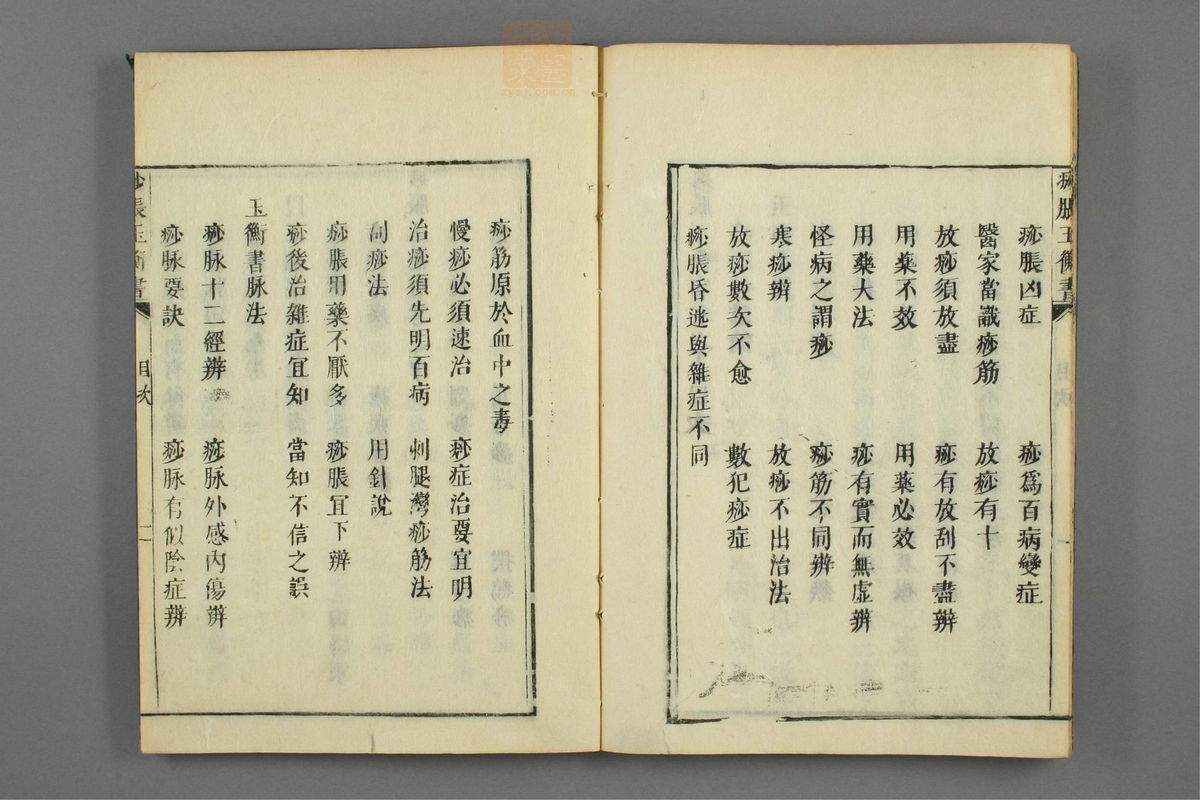 痧脹玉衡書
目次
一
痧脹凶症 痧爲百病變症
醫家當識痧筋 放痧有十
放痧須放盡 痧有放刮不盡辨
用藥不效 用藥必效
用藥大法 痧有實而無虛辨
怪病之謂痧 痧筋不同辨
寒痧辨 放痧不出治法
放痧數次不愈 數犯痧症
痧脹昏迷與雜症不同
痧筋原於血中之毒
慢痧必須速治 痧症治要宜明
治痧須先明百病 刺腿灣痧筋法
刮痧法 用針說
痧脹用藥不厭多 痧脹宜下辨
痧後治雜症宜知 當知不信之誤
玉衡書脉法
痧脉十二經辨 痧脉外感內傷辨
痧脉要訣 痧脉有似陰症辨
痧脹玉衡書
目次
二